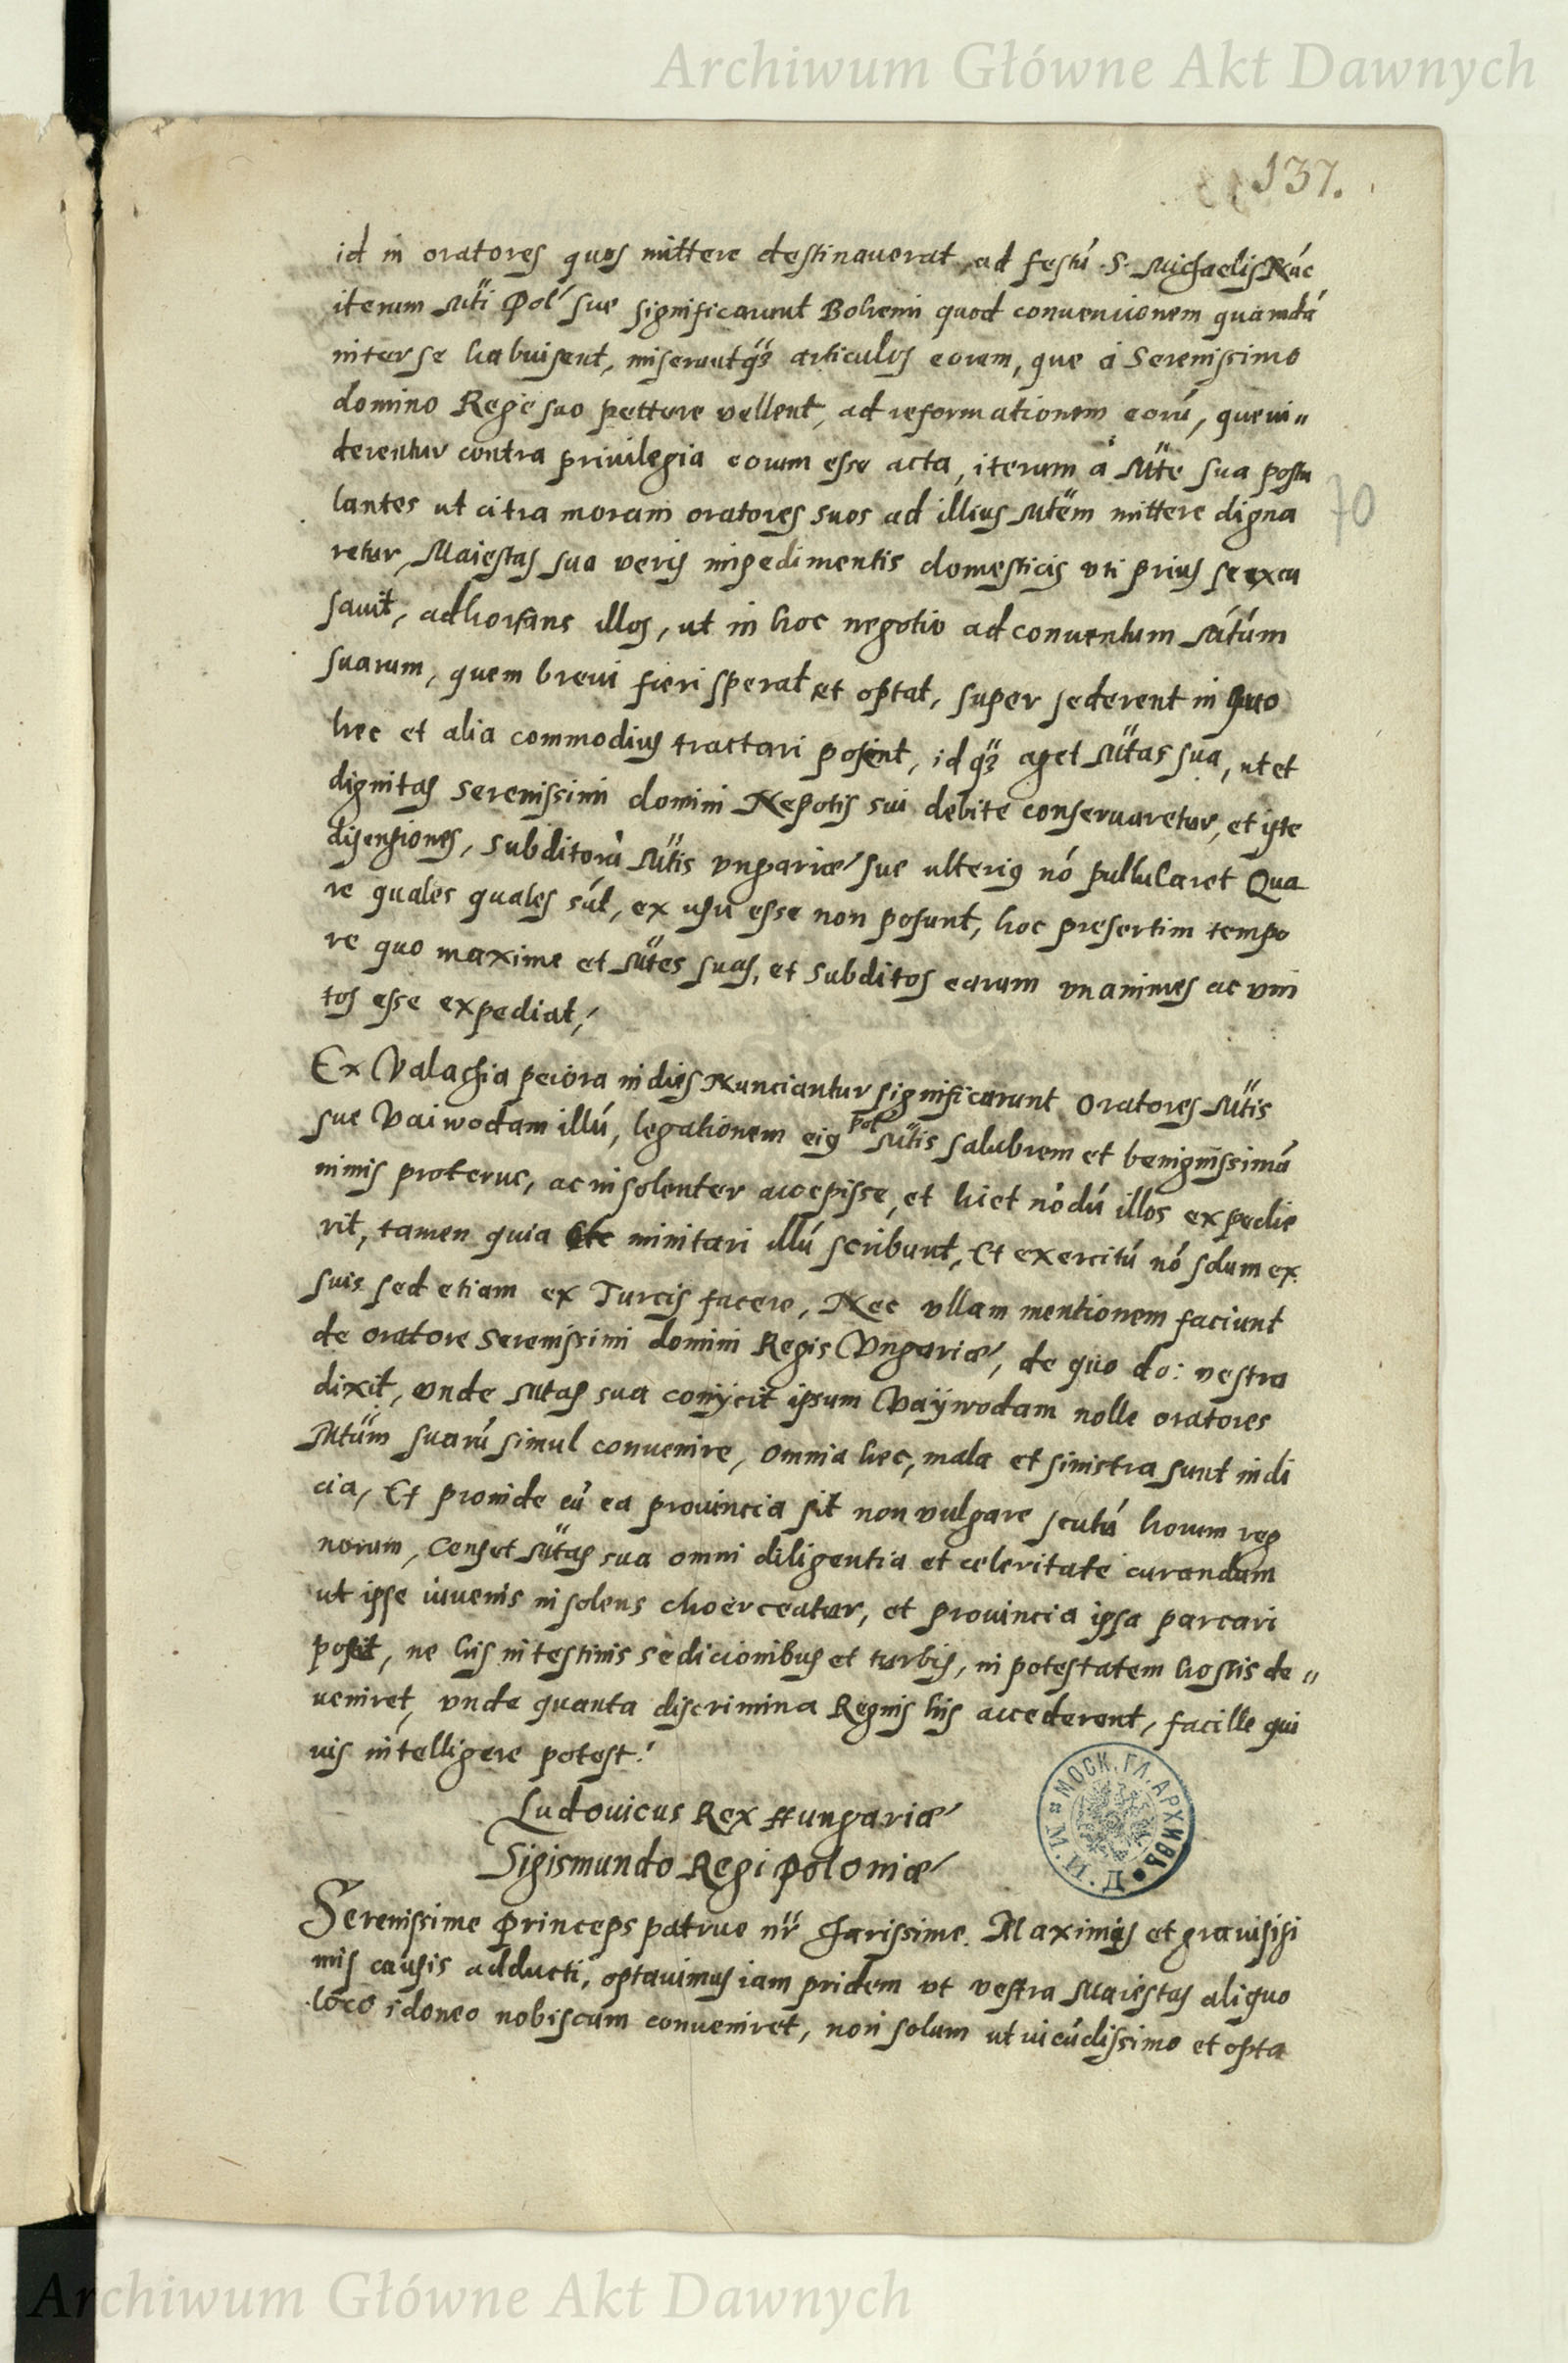 Archiwum Główne Akt Dawnych
137.
id in oratores quos mittere destinauerat, ad festũ S. Michaelis Nũc
iterum Mti Pol' sue significarunt Bohemi quod conuencionem quamdã
inter se habuisent, miseruntq₃ articulos eorem, que á Serenissimo
domino Rege suo pettere vellent, ad reformationem eorũ, que ui〃
derentur contra priuilegia eorum esse acta, iterum á Mte sua postu
lantes ut citra moram oratores suos ad illius Mtem mittere digna
70
retur, Maiestas sua veris impedimentis domesticis vti prius se excu
sauit, adhortans illos, ut in hoc negotio ad conuentum Mtum
suarum, quem breui fieri sperat et optat, super sederent in quo
hec et alia commodius tractari posent, idq₃ aget Mtas sua, ut et
dignitas serenissimi domini Nepotis sui debite conseruaretur, et iste
disensiones, subditorũ Mtis vngariæ sue ulterius nõ pullularet Qua
re quales quales sũt, ex usu esse non posunt, hoc presertim tempo
re quo maxime et Mtes suas, et subditos earum vnanimes ac vni
tos esse expediat,
Ex Valachia peiora in dies Nunciantur significarunt oratores Mtis
sue Vaiwodam illũ, legationem eius pol' Mtis salubrem et benignissimã
nimis proterue, ac insolenter accepisse, et licet nõdũ illos expedie
rit, tamen quia minitari illũ scribunt, Et exercitũ nõ solum ex
suis sed etiam ex Turcis facere, Nec vllam mentionem faciunt
de oratore serenissimi domini Regis Vngariæ, de quo do: vestra
dixit, vnde Mtas sua conijcit ipsum Vaÿwodam nolle oratores
Mtum suarũ simul conuenire, omnia hec, mala et sinistra sunt indi
cia, Et proinde cũ ea prouincia sit non vulgare scutũ horum reg
norum, censet Mtas sua omni diligentia et celeritate curandum
ut ipse iuuenis insolens choerceatur, et prouincia ipsa parcari
posit, ne his intestinis sedicionibus et turbis, in potestatem hostis de〃
ueniret, vnde quanta discrimina Regnis his accederent, facille qui
uis intelligere potest.
Ludouicus Rex Hungariæ
Sigismundo Regi Poloniæ
МОСК. ГЛ. АРХИВЪ М. И. Д.
Serenissime Princeps patrue nr̃ charissime. Maximis et grauisisi
mis causis adducti, optauimus iam pridem vt vestra Maiestas aliquo
loco idoneo nobiscum conueniret, non solum ut iucũdissimo et opta
Archiwum Główne Akt Dawnych